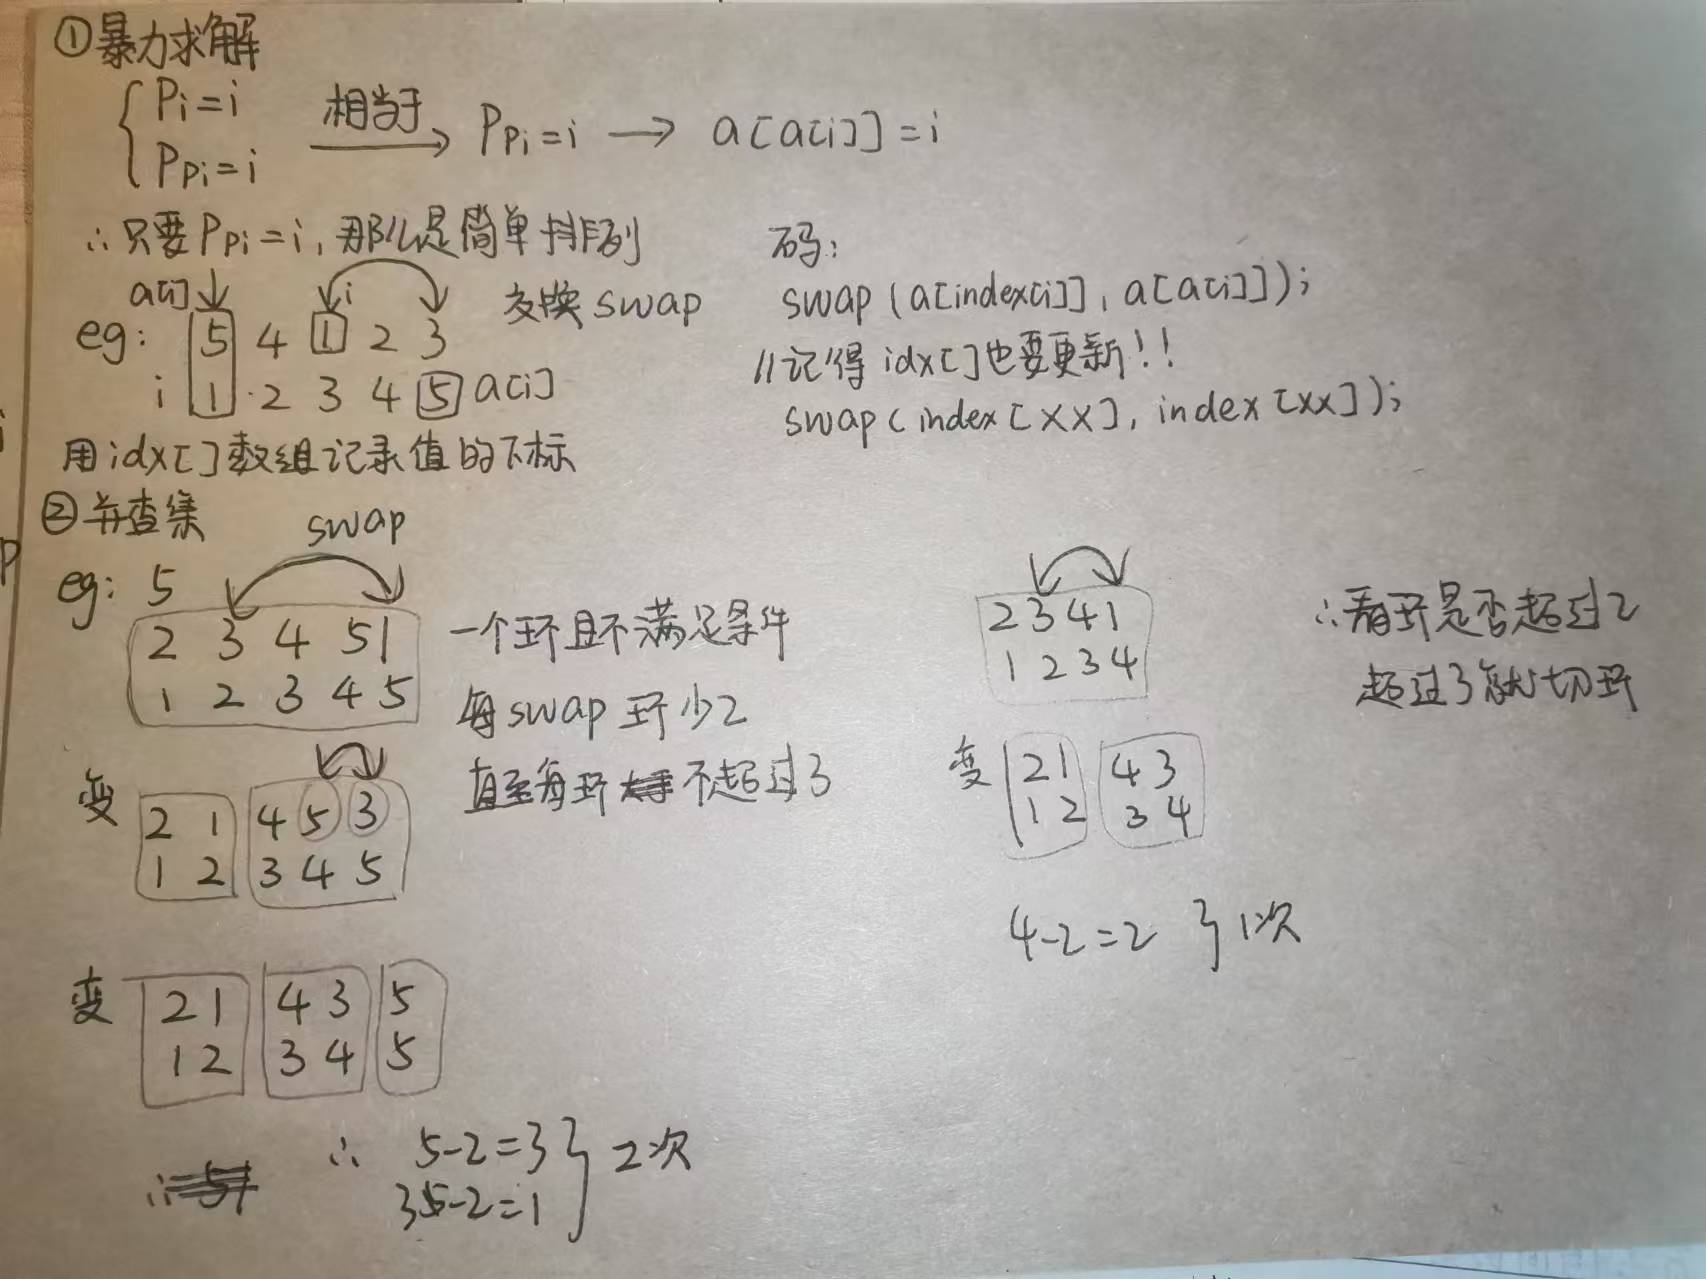 ①暴力求解
Pi=i
PPi=i
相当于
PPi=i → a[a[i]]=i
∴只要PPi=i,那么是简单排列
a[i] i
交换swap
eg: 5 4 1 2 3
i 1 2 3 4 5 a[i]
用idx[]数组记录值的下标
码:
swap(a[index[i]], a[a[i]]);
//记得idx[]也要更新!!
swap(index[XX], index[XX]);
②并查集
swap
eg: 5
2 3 4 5 1
1 2 3 4 5
一个环且不满足条件
每swap环少2
直至每环不超过3
变
2 1 4 5 3
1 2 3 4 5
变
2 1 4 3 5
1 2 3 4 5
∴ 5-2=3
3-2=1
2次
2 3 4 1
1 2 3 4
∴看环是否超过2
超过3就切环
变
2 1 4 3
1 2 3 4
4-2=2 } 1次